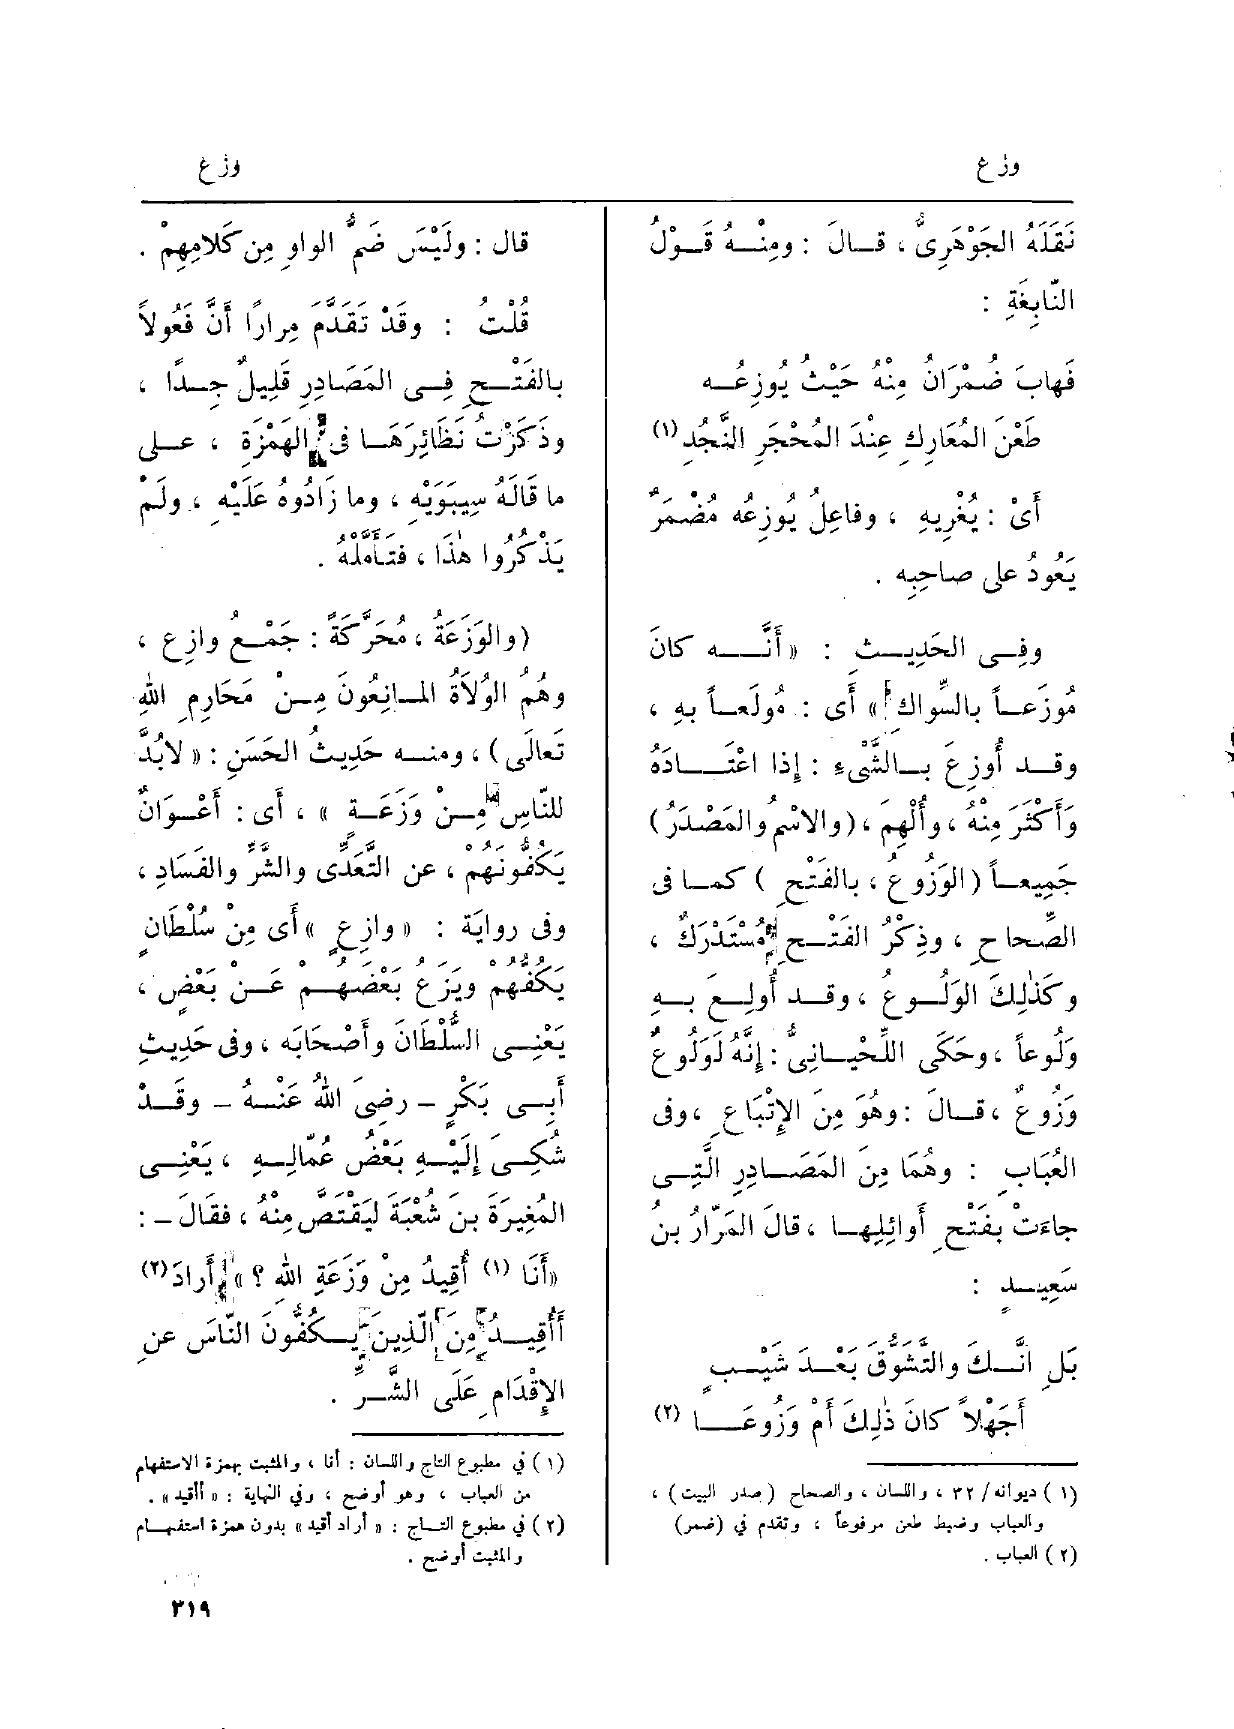 وزع
وزع
نَقَلَهُ الجَوْهَرِىُّ ، قــالَ : ومِنْــهُ قَــوْلُ
النّابِغَةِ :
فَهابَ ضُمْرَانُ مِنْهُ حَيْثُ يُوزِعُــه
طَعْنَ المُعَارِكِ عِنْدَ المُحْجَرِ النَّجُدِ (١)
أَىْ : يُغْرِيهِ ، وفاعِلُ يُوزِعُه مُضْمَرٌ
يَعُودُ على صاحِبِه .
وفِــى الحَدِيــثِ : «أَنَّـــه كانَ
مُوزَعــاً بالسِّواكِ» أَى : مُولَعــاً بهِ ،
وقــد أُوزِعَ بــالشَّىءِ : إذا اعْتَــادَهُ
وَأَكْثَرَ مِنْهُ ، وأُلْهِمَ ، (والاسْمُ والمَصْدَرُ)
جَمِيعــاً (الوَزُوعُ ، بالفَتْحِ) كمــا فى
الصِّحاحِ ، وذِكْرُ الفَتْــحِ مُسْتَدْرَكٌ ،
وكَذٰلِكَ الوَلُــوعُ ، وقــد أُولِــعَ بــهِ
وَلُوعاً ، وحَكَى اللِّحْيــانِىُّ : إنَّهُ لَوَلُوعٌ
وَزُوعٌ ، قــالَ : وهُوَ مِنَ الإِتْباعِ ، وفى
العُبَابِ : وهُمَا مِنَ المَصَــادِرِ الَّتِــى
جاءَتْ بفَتْحِ أوائِلِهــا ، قالَ المَرّارُ بنُ
سَعِيــدٍ :
بَلِ انَّــكَ والتَّشَوُّقَ بَعْــدَ شَيْــبٍ
أَجَهْلاً كانَ ذٰلِكَ أَم وَزُوعَـــا (٢)
(١) ديوانه/ ٣٢ ، واللسان ، والصحاح (صدر البيت) ،
والعباب وضبط طعن مرفوعاً ، وتقدم في (ضمر)
(٢) العباب .
قال : ولَيْسَ ضَمُّ الواوِ مِن كَلامِهِمْ .
قُلْتُ : وقَدْ تَقَدَّمَ مِرارًا أَنَّ فَعُولاً
بالفَتْــحِ فِــى المَصَادِرِ قَلِيلٌ جِــدًا ،
وذَكَرْتُ نَظَائِرَهَــا فى الهَمْزَةِ ، عــلى
ما قَالَهُ سِيبَوَيْهِ ، وما زَادُوهُ عَلَيْهِ ، ولَمْ
يَذْكُرُوا هٰذَا ، فتَأَمَّلْهُ .
(والوَزَعَةُ ، مُحَرَّكَةً : جَمْــعُ وازِعٍ ،
وهُمُ الوُلاَةُ المــانِعُونَ مِــنْ مَحَارِمِ اللهِ
تَعالَى) ، ومنــه حَدِيثُ الحَسَنِ : « لابُدَّ
للنّاسِ مِــنْ وَزَعَــةٍ » ، أَى : أَعْــوَانٌ
يَكُفُّونَهُم ، عن التَّعَدِّى والشَّرِّ والفَسَادِ ،
وفى روايَة : « وازِعٍ » أَى مِنْ سُلْطَانٍ
يَكُفُّهُمْ ويَزَعُ بَعْضَهُــمْ عَــنْ بَعْضٍ ،
يَعْنِــى السُّلْطَانَ وأَصْحَابَه ، وفى حَدِيثِ
أَبِــى بَكْرٍ – رضِىَ اللهُ عَنْــهُ – وقَــدْ
شُكِــىَ إلَيْــهِ بَعْضُ عُمّالِــهِ ، يَعْنِــى
المُغِيرَةَ بنَ شُعْبَةَ لِيَقْتَصَّ مِنْهُ ، فقَالَ – :
«أَنَا (١) أُقِيدُ مِنْ وَزَعَةِ اللهِ ؟ » أَرادَ (٢)
أَأُقِيــدُ مِنَ الَّذِينَ يَــكُفُّونَ النّاسَ عنِ
الإِقْدَامِ عَلَى الشَّــرِّ .
(١) في مطبوع التاج واللسان : أنا ، والمثبت بهمزة الاستفهام
من العباب ، وهو أوضح ، وفي النهاية : « أأقيد» .
(٢) في مطبوع التــاج : « أراد أقيد» بدون همزة استفهــام
والمثبت أوضح .
٣١٩